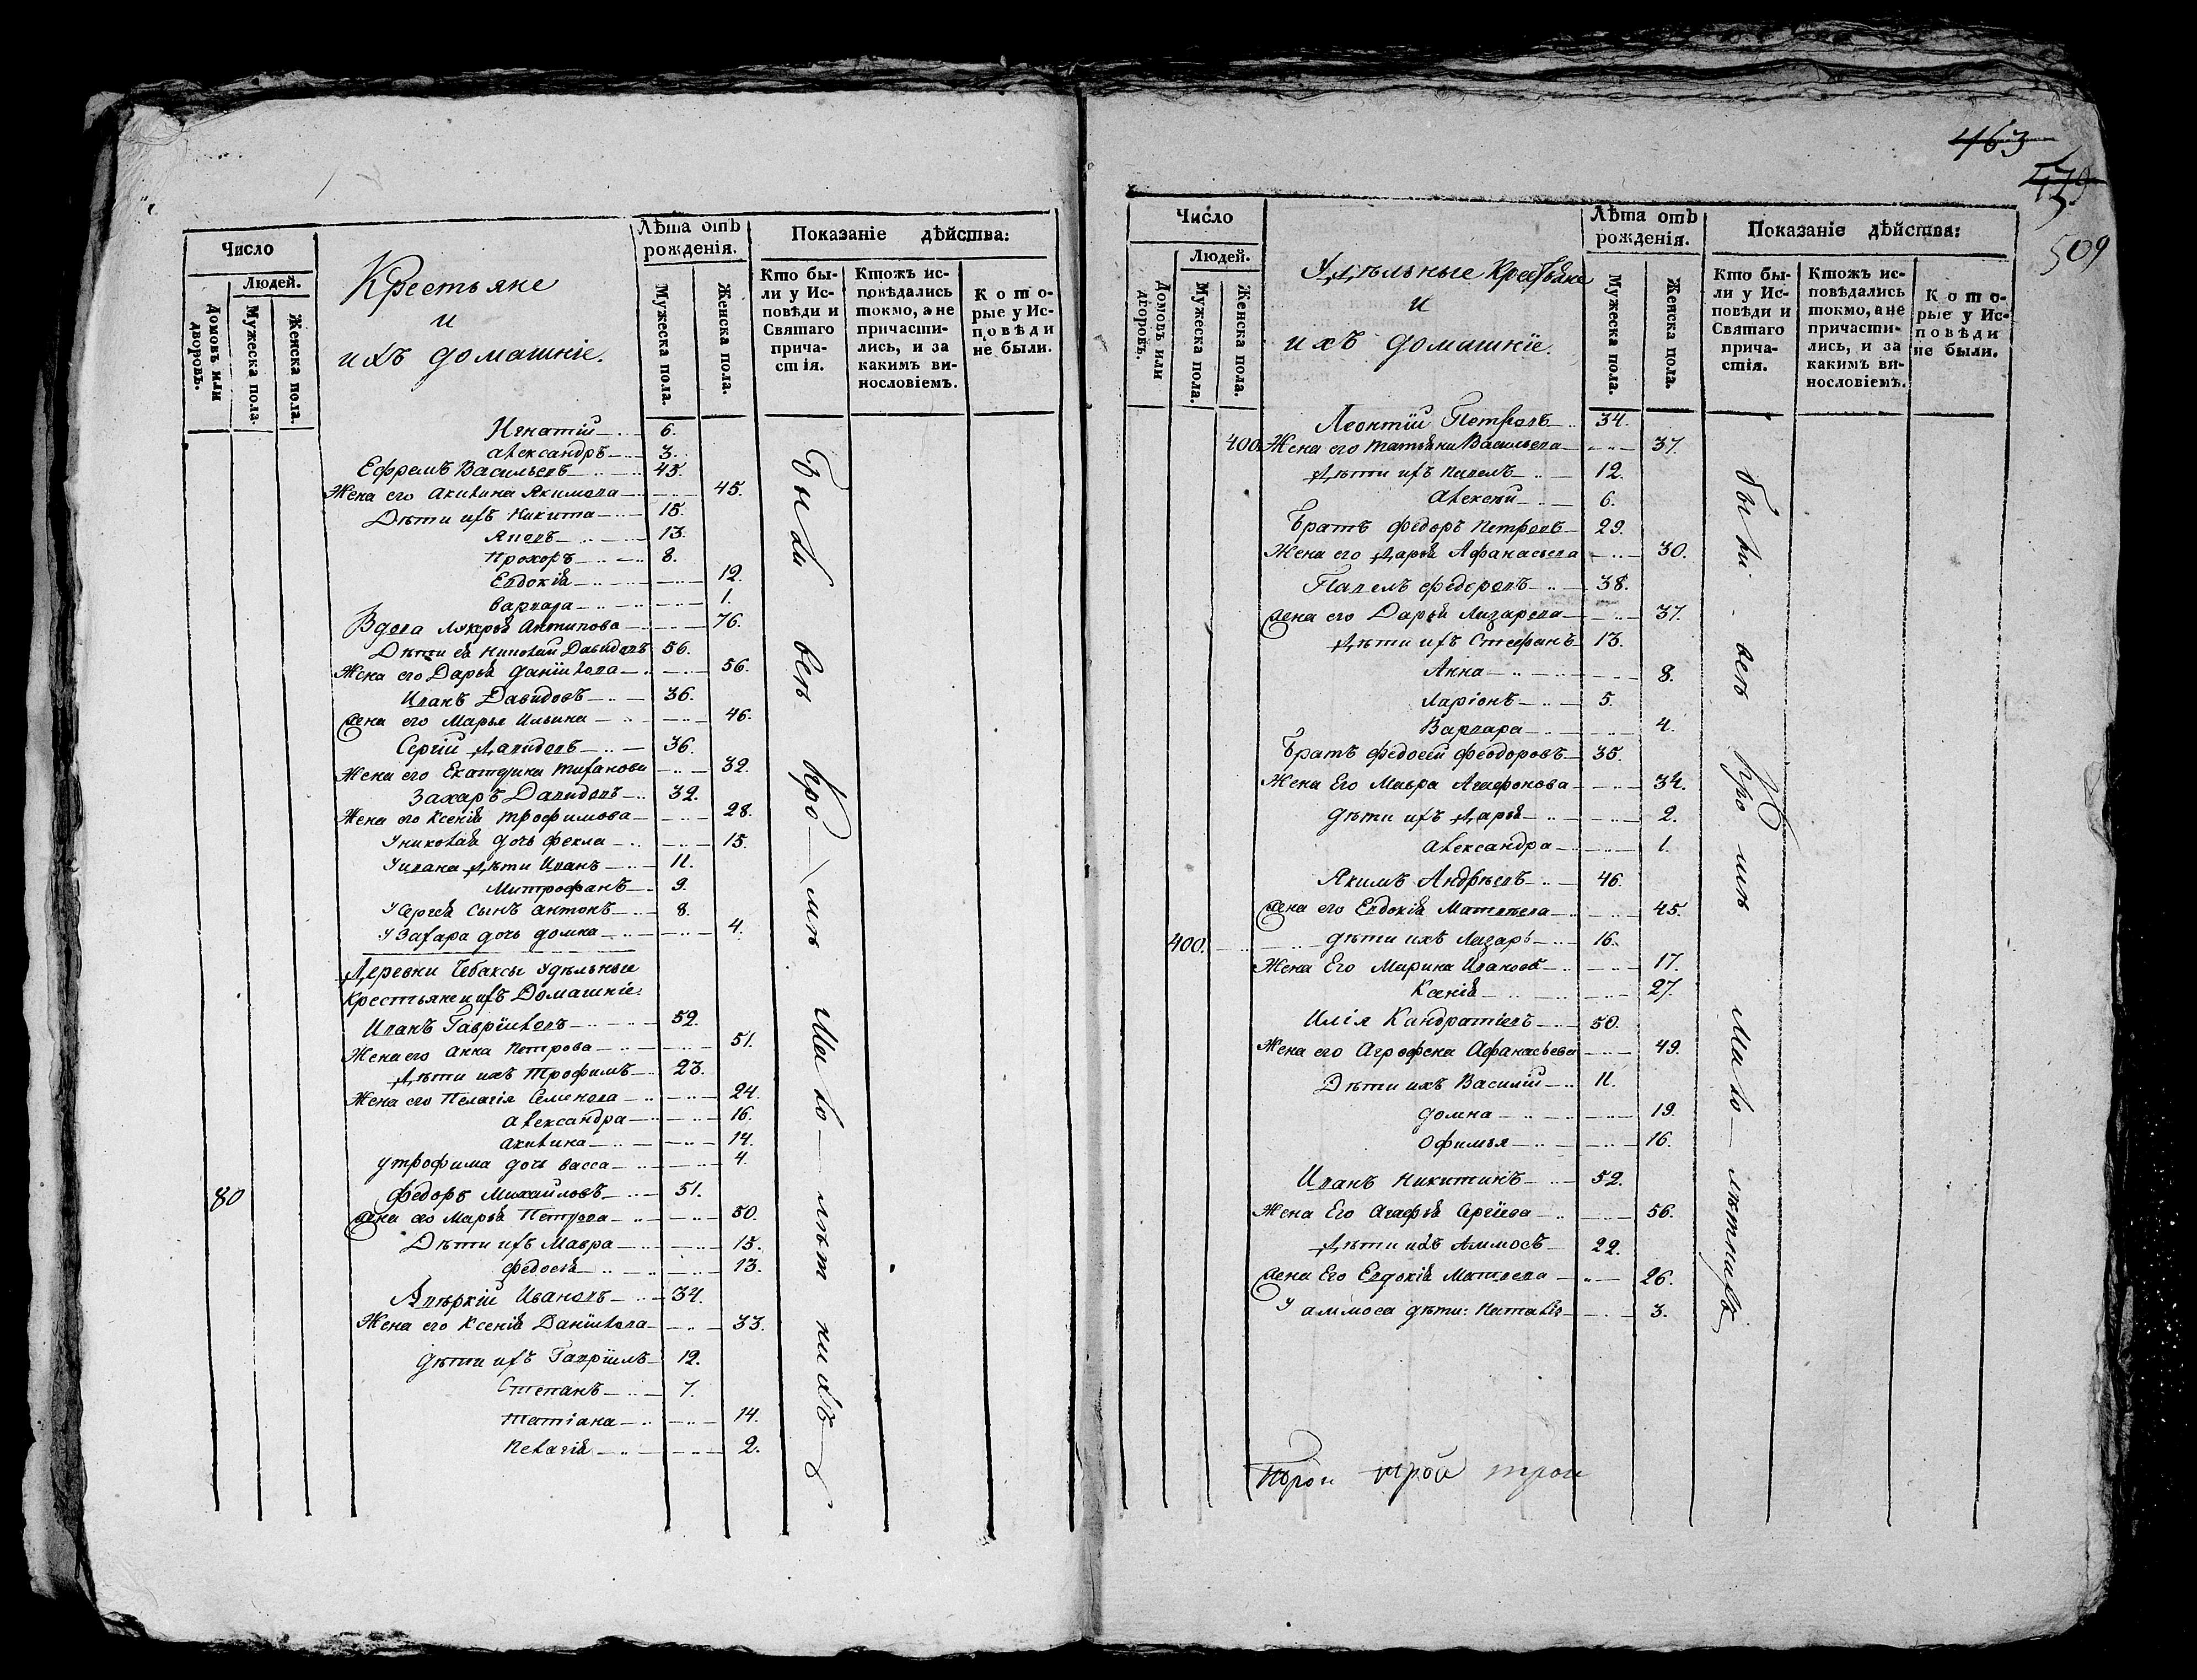 Число
Людей.
Домовъ или дворовъ.
Мужеска пола.
Женска пола.
Крестьяне
и
ихъ домашніе.
Лѣта отъ рожденія.
Мужеска пола.
Женска пола.
Показаніе дѣйства:
Кто бы-
ли у Ис-
повѣди и
Святаго
прича-
стія.
Ктожъ ис-
повѣдались
токмо, а не
причасти-
лись, и за
какимъ ви-
нословіемъ.
К о т о-
рые у Ис-
п о в ѣ д и
не были.
Игнатій 6.
Александръ 3.
Ефремъ Васильевъ 45.
Жена его Акилина Якимова 45.
Дѣти ихъ Никита 15.
Яковъ 13.
Прохоръ 8.
Евдокія 12.
Варвара 1.
Вдова Лукерья Антипова 76.
Дѣти ея Николай Давидовъ 56.
Жена его Дарья Даніилова 56.
Иванъ Давидовъ 36.
Жена его Марья Ильина 46.
Сергій Давидовъ 36.
Жена его Екатерина Тиханова 32.
Захаръ Давидовъ 32.
Жена его Ксенія Трофимова 28.
У николая дочь Фекла 15.
У ивана дѣти Иванъ 11.
Митрофанъ 9.
У Сергея сынъ Антонъ 8.
У Захара дочь домна 4.
Деревни Чебаксы Удѣльные
Крестьяне и ихъ Домашніе
Иванъ Гавріиловъ 52.
Жена его Анна Петрова 51.
Дѣти ихъ Трофимъ 23.
Жена его Пелагія Семенова 24.
Александра 16.
Акилина 14.
У трофима дочь Васса 4.
80 Федоръ Михайловъ 51.
Жена его Марья Петрова 50.
Дѣти ихъ Мавра 15.
Федосья 13.
Авѣркій Ивановъ 34.
Жена его Ксенія Даніилова 33.
дѣти ихъ Гавріилъ 12.
Степанъ 7.
Татіана 14.
Пелагія 2.
Были всѣ кро-мѣ мало-лѣтнихъ
463
479
509
Число
Людей.
Домовъ или дворовъ.
Мужеска пола.
Женска пола.
Удѣльные Крестьяне
и
ихъ домашніе.
Лѣта отъ рожденія.
Мужеска пола.
Женска пола.
Показаніе дѣйства:
Кто бы-
ли у Ис-
повѣди и
Святаго
прича-
стія.
Ктожъ ис-
повѣдались
токмо, а не
причасти-
лись, и за
какимъ ви-
нословіемъ.
К о т о-
рые у Ис-
п о в ѣ д и
не были.
Леонтій Петровъ 34.
400 Жена его татьяна Васильева 37.
Дѣти ихъ Павелъ 12.
Алексѣй 6.
Братъ Федоръ Петровъ 29.
Жена его Дарья Афанасьева 30.
Павелъ Федоровъ 38.
Жена его Дарья Лазарева 37.
Дѣти ихъ Стефанъ 13.
Анна 8.
Ларіонъ 5.
Варвара 4.
Братъ Федосей Феодоровъ 35.
Жена Его Мавра Агафонова 34.
дѣти ихъ Дарья 2.
Александра 1.
Якимъ Андрѣевъ 46.
Жена его Евдокія Матвѣева 45.
400. дѣти ихъ Лазарь 16.
Жена Его Марина Иванова 17.
Ксенія 27.
Илія Кандратіевъ 50.
Жена его Агрофена Афанасьева 49.
Дѣти ихъ Василій 11.
домна 19.
Офимья 16.
Иванъ Никитинъ 52.
Жена Его Агафья Сргіева 56.
Дѣти ихъ Аммосъ 22.
Жена Его Евдокія Матвѣева 26.
У аммоса дѣти: Наталія 3.
были всѣ кро мѣ мало-лѣтнихъ
трои трои